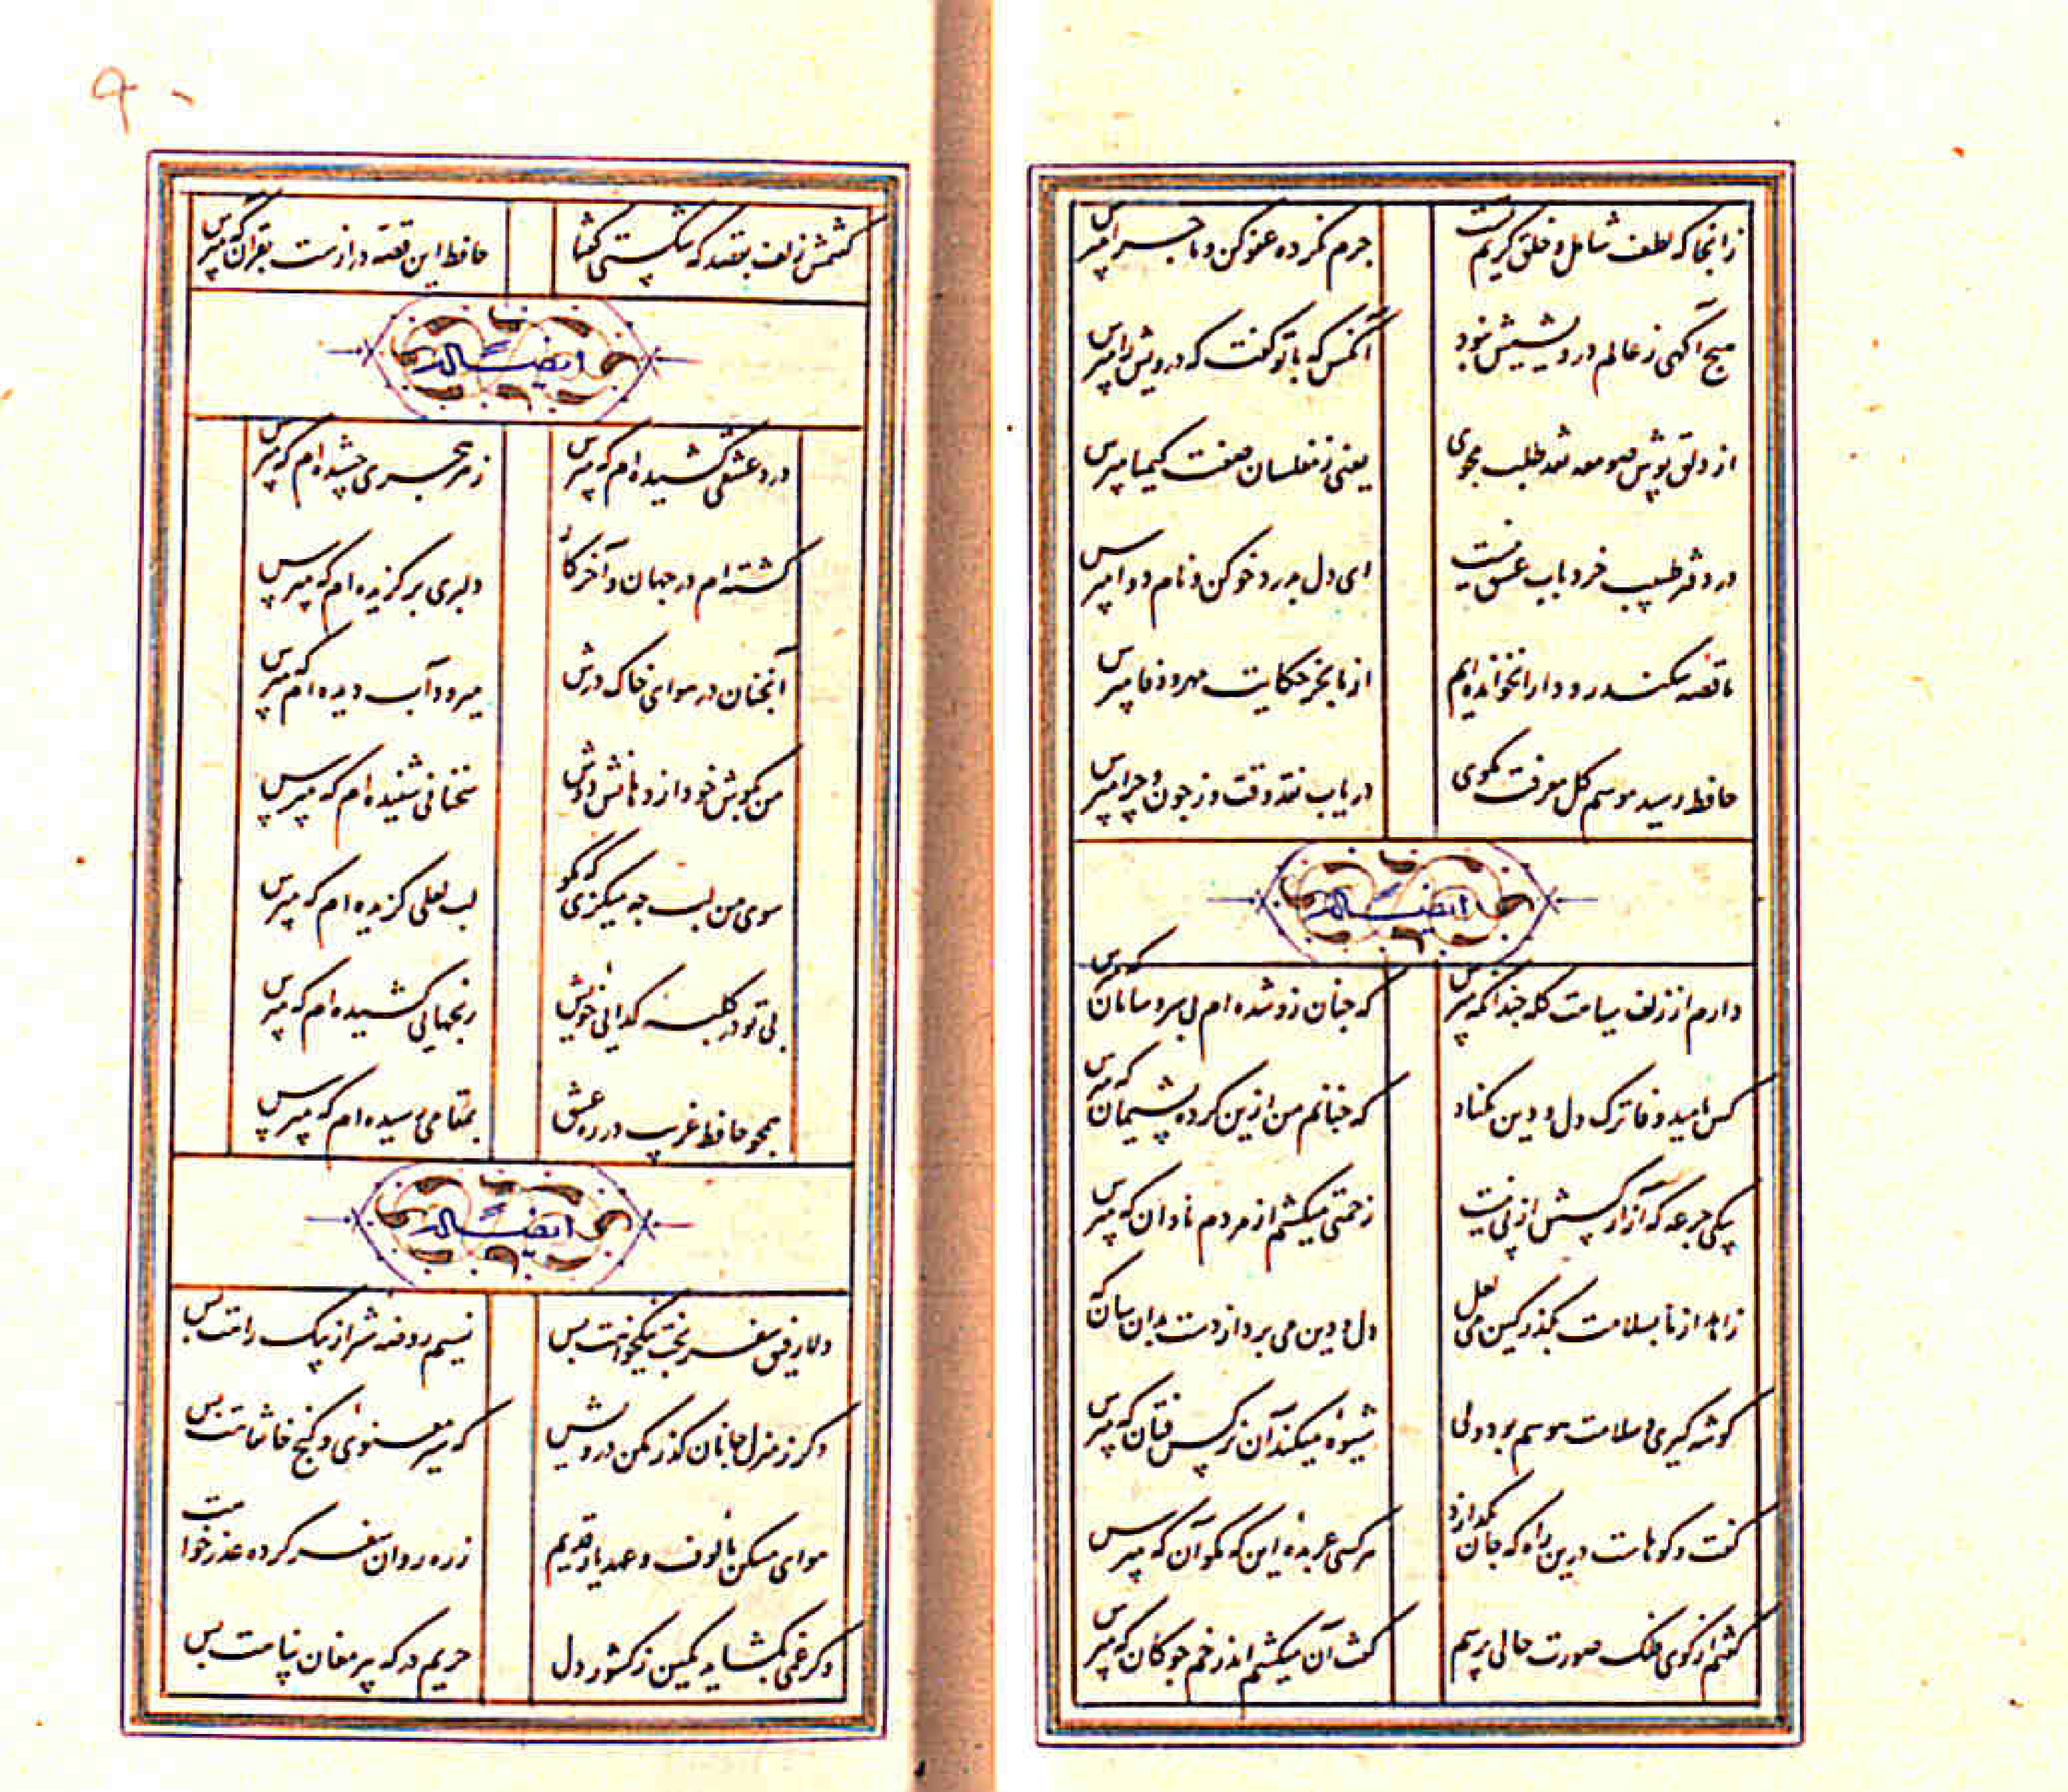 ۹۰
زانجا که لطف شامل و خلق کریم تست جرم نکرده عفو کن و ماجرا مپرس
هیچ آگهی ز عالم درویشیش نبود آنکس که با تو گفت که درویش را مپرس
از دلق پوش صومعه نقد طلب مجوی یعنی ز مفلسان صفت کیمیا مپرس
در دفتر طبیب خرد باب عشق نیست ای دل بدرد خو کن و نام دوا مپرس
ما قصه سکندر و دارا نخوانده ایم از ما بجز حکایت مهر و وفا مپرس
حافظ رسید موسم گل معرفت مگوی دریاب نقد وقت و ز چون و چرا مپرس
ایضاً له
دارم از زلف سیاهت گله چندانکه مپرس که چنان زو شده ام بی سر و سامان که مپرس
کس بامید وفا ترک دل و دین مکناد که چنانم من ازین کرده پشیمان که مپرس
بیکی جرعه که آزار کسش از پی نیست زحمتی میکشم از مردم نادان که مپرس
زاهد از ما بسلامت بگذر کین می لعل دل و دین می برد از دست بدان سان که
گوشه گیری و سلامت هوسم بود ولی شیوهٔ میکند آن نرگس فتان که مپرس
گفت و گوهاست درین راه که جان بگدازد هر کسی عربدهٔ این که مگو آن که مپرس
گفتم از گوی فلک صورت حالی پرسم گفت آن میکشم اندر خم چوگان که مپرس
گفتمش زلف بقصد که شکستی گفتا حافظ این قصه درازست بقرآن که مپرس
ایضاً له
درد عشقی کشیده ام که مپرس زهر هجری چشیده ام که مپرس
گشته ام در جهان و آخر کار دلبری برگزیده ام که مپرس
آنچنان در هوای خاک درش میرود آب دیده ام که مپرس
من بگوش خود از دهانش دوش سخنانی شنیده ام که مپرس
سوی من لب چه میگزی که مگو لب لعلی گزیده ام که مپرس
بی تو در کلبه گدائی خویش رنجهایی کشیده ام که مپرس
همچو حافظ غریب در ره عشق بمقامی رسیده ام که مپرس
ایضاً له
دلا رفیق سفر بخت نیکخواهت بس نسیم روضه شیراز پیک راهت بس
دگر ز منزل جانان گذر مکن درویش که سیر معنوی و کنج خانقاهت بس
هوای مسکن مألوف و عهد یار قدیم ز ره روان سفر کرده عذر خواهت
دگر غمی بگشاید کمین ز کشور دل حریم درگه پیر مغان پناهت بس